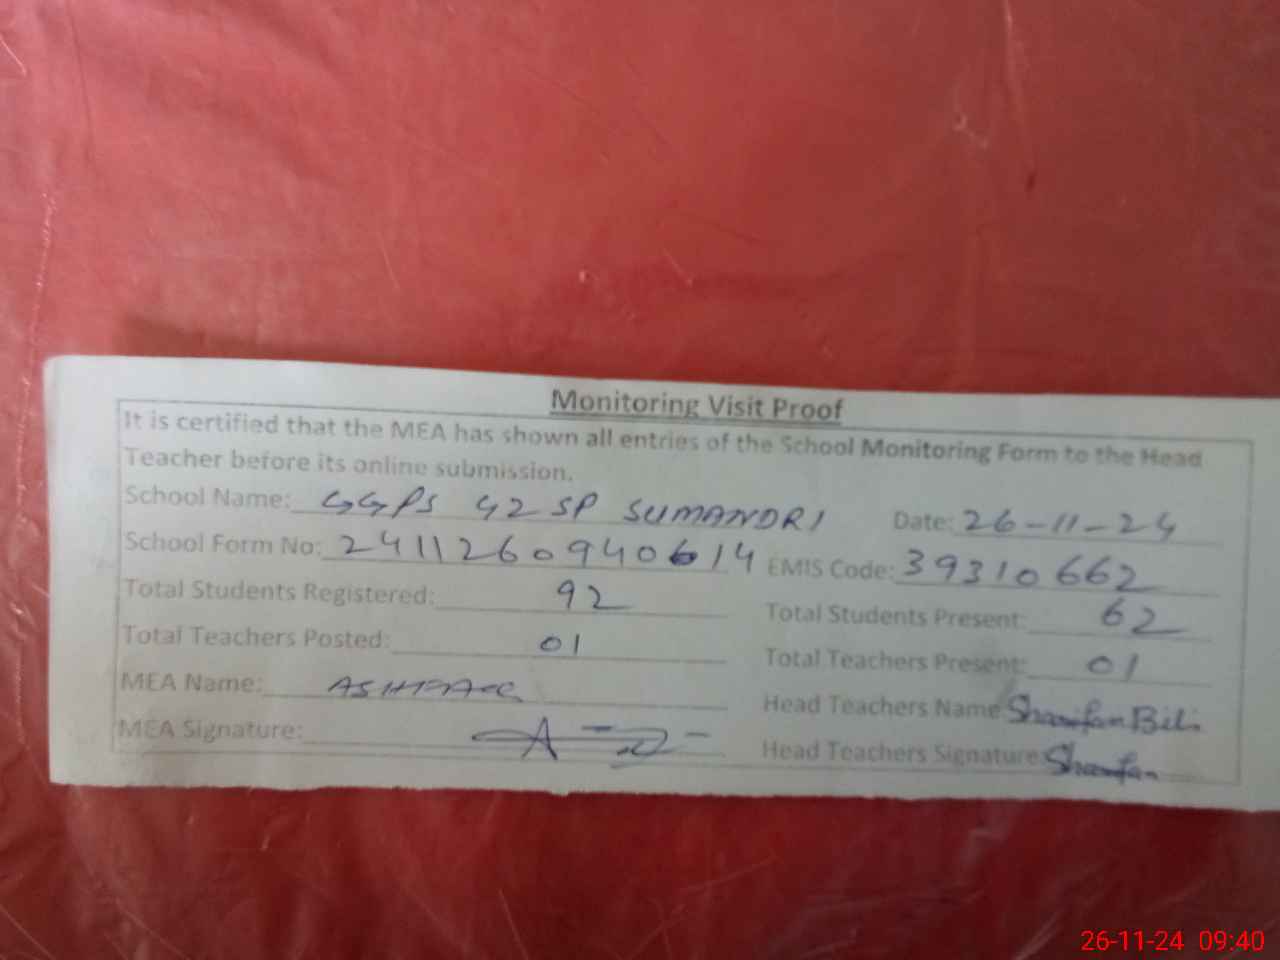 Monitoring Visit Proof
It is certified that the MEA has shown all entries of the School Monitoring Form to the Head
Teacher before its online submission.
School Name: GGPS 42 SP SUMANDRI Date: 26-11-24
School Form No: 2411260940614 EMIS Code: 39310662
Total Students Registered: 92 Total Students Present: 62
Total Teachers Posted: 01 Total Teachers Present: 01
MEA Name: Head Teachers Name Sharifan Bibi
MEA Signature: Head Teachers Signature: Sharifan
26-11-24 09:40